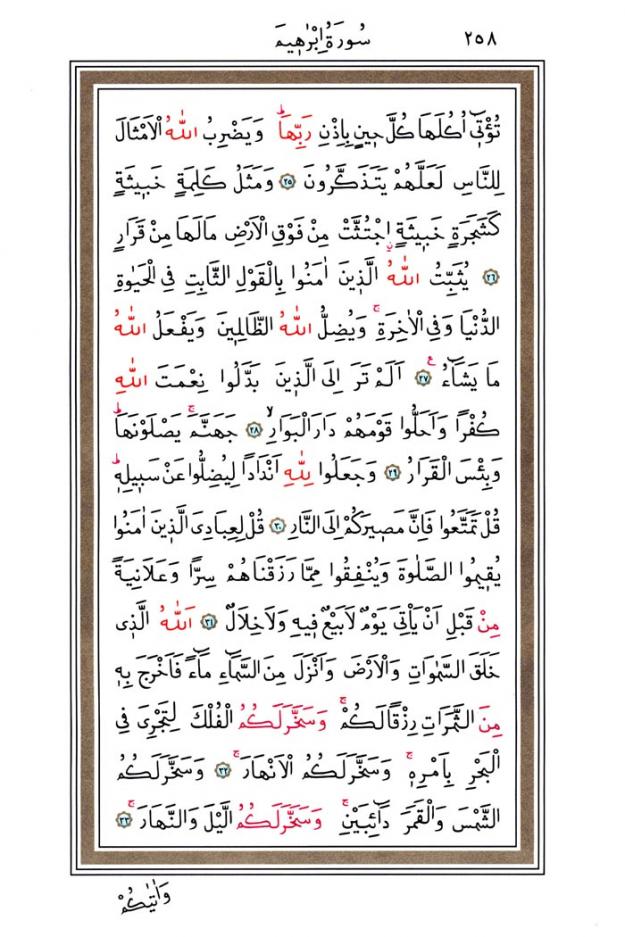 ٢٥٨ سُورَةُ اِبْرٰه۪يمَ
تُؤْت۪ٓي اُكُلَهَا كُلَّ ح۪ينٍ بِاِذْنِ رَبِّهَاۜ وَيَضْرِبُ اللّٰهُ الْاَمْثَالَ
لِلنَّاسِ لَعَلَّهُمْ يَتَذَكَّرُونَ ﴿٢٥﴾ وَمَثَلُ كَلِمَةٍ خَب۪يثَةٍ
كَشَجَرَةٍ خَب۪يثَةٍ اجْتُثَّتْ مِنْ فَوْقِ الْاَرْضِ مَا لَهَا مِنْ قَرَارٍ
﴿٢٦﴾ يُثَبِّتُ اللّٰهُ الَّذ۪ينَ اٰمَنُوا بِالْقَوْلِ الثَّابِتِ فِي الْحَيٰوةِ
الدُّنْيَا وَفِي الْاٰخِرَةِۚ وَيُضِلُّ اللّٰهُ الظَّالِم۪ينَ وَيَفْعَلُ اللّٰهُ
مَا يَشَٓاءُ۟ ﴿٢٧﴾ اَلَمْ تَرَ اِلَى الَّذ۪ينَ بَدَّلُوا نِعْمَتَ اللّٰهِ
كُفْرًا وَاَحَلُّوا قَوْمَهُمْ دَارَ الْبَوَارِۙ ﴿٢٨﴾ جَهَنَّمَۚ يَصْلَوْنَهَاۜ
وَبِئْسَ الْقَرَارُ ﴿٢٩﴾ وَجَعَلُوا لِلّٰهِ اَنْدَادًا لِيُضِلُّوا عَنْ سَب۪يلِه۪ۜ
قُلْ تَمَتَّعُوا فَاِنَّ مَص۪يرَكُمْ اِلَى النَّارِ ﴿٣٠﴾ قُلْ لِعِبَادِيَ الَّذ۪ينَ اٰمَنُوا
يُق۪يمُوا الصَّلٰوةَ وَيُنْفِقُوا مِمَّا رَزَقْنَاهُمْ سِرًّا وَعَلَانِيَةً
مِنْ قَبْلِ اَنْ يَأْتِيَ يَوْمٌ لَا بَيْعٌ ف۪يهِ وَلَا خِلَالٌ ﴿٣١﴾ اَللّٰهُ الَّذ۪ي
خَلَقَ السَّمٰوَاتِ وَالْاَرْضَ وَاَنْزَلَ مِنَ السَّمَٓاءِ مَٓاءً فَاَخْرَجَ بِه۪
مِنَ الثَّمَرَاتِ رِزْقًا لَكُمْۚ وَسَخَّرَ لَكُمُ الْفُلْكَ لِتَجْرِيَ فِي
الْبَحْرِ بِاَمْرِه۪ۚ وَسَخَّرَ لَكُمُ الْاَنْهَارَۚ ﴿٣٢﴾ وَسَخَّرَ لَكُمُ
الشَّمْسَ وَالْقَمَرَ دَٓائِبَيْنِۚ وَسَخَّرَ لَكُمُ الَّيْلَ وَالنَّهَارَۚ ﴿٣٣﴾
وَاٰتٰيكُمْ